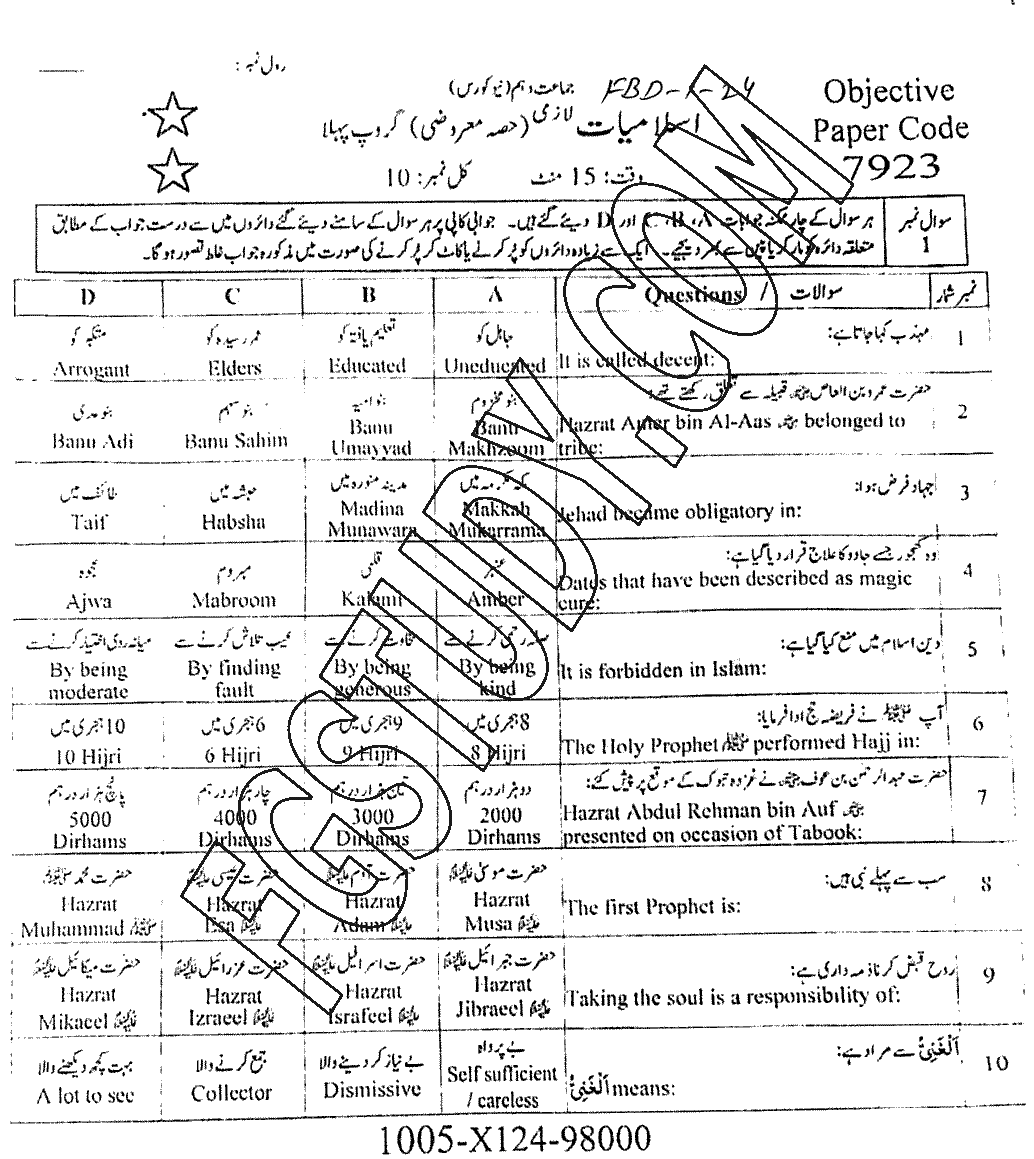 رول نمبر:
جماعت دہم (نیو کورس) FBD-1-24
اسلامیات لازمی (حصہ معروضی) گروپ پہلا
وقت: 15 منٹ کل نمبر: 10
Objective
Paper Code
7923
سوال نمبر 1
ہر سوال کے چار ممکنہ جوابات A، B، C اور D دیئے گئے ہیں۔ جوابی کاپی پر ہر سوال کے سامنے دیئے گئے دائروں میں سے درست جواب کے مطابق
متعلقہ دائرہ کو مارکر یا پین سے بھر دیجیے۔ ایک سے زیادہ دائروں کو پُر کرنے یا کاٹ کر پُر کرنے کی صورت میں مذکورہ جواب غلط تصور ہو گا۔
D C B A Questions / سوالات نمبر شمار
متکبر کو عمر رسیدہ کو تعلیم یافتہ کو جاہل کو مہذب کہا جاتا ہے: 1
Arrogant Elders Educated Uneducated It is called decent:
بنو عدی بنو سہم بنو امیہ بنو مخزوم حضرت عمرو بن العاص رضی اللہ عنہ قبیلہ سے تعلق رکھتے تھے: 2
Banu Adi Banu Sahim Banu Umayyad Banu Makhzoom Hazrat Amar bin Al-Aas رضی اللہ عنہ belonged to
tribe:
طائف میں حبشہ میں مدینہ منورہ میں مکہ مکرمہ میں جہاد فرض ہوا: 3
Taif Habsha Madina Munawara Makkah Mukarrama Jehad became obligatory in:
عجوہ مبروم قلمی عنبر وہ کھجور جسے جادو کا علاج قرار دیا گیا ہے: 4
Ajwa Mabroom Kalami Amber Dates that have been described as magic
cure:
میانہ روی اختیار کرنے سے عیب تلاش کرنے سے سخاوت کرنے سے صلہ رحمی کرنے سے دین اسلام میں منع کیا گیا ہے: 5
By being moderate By finding fault By being generous By being kind It is forbidden in Islam:
10 ہجری میں 6 ہجری میں 9 ہجری میں 8 ہجری میں آپ ﷺ نے فریضہ حج ادا فرمایا: 6
10 Hijri 6 Hijri 9 Hijri 8 Hijri The Holy Prophet ﷺ performed Hajj in:
پانچ ہزار درہم چار ہزار درہم تین ہزار درہم دو ہزار درہم حضرت عبدالرحمن بن عوف رضی اللہ عنہ نے غزوہ تبوک کے موقع پر پیش کئے: 7
5000 Dirhams 4000 Dirhams 3000 Dirhams 2000 Dirhams Hazrat Abdul Rehman bin Auf رضی اللہ عنہ
presented on occasion of Tabook:
حضرت محمد ﷺ حضرت عیسیٰ علیہ السلام حضرت آدم علیہ السلام حضرت موسیٰ علیہ السلام سب سے پہلے نبی ہیں: 8
Hazrat Muhammad ﷺ Hazrat Esa علیہ السلام Hazrat Adam علیہ السلام Hazrat Musa علیہ السلام The first Prophet is:
حضرت میکائیل علیہ السلام حضرت عزرائیل علیہ السلام حضرت اسرافیل علیہ السلام حضرت جبرائیل علیہ السلام روح قبض کرنا ذمہ داری ہے: 9
Hazrat Mikaeel علیہ السلام Hazrat Izraeel علیہ السلام Hazrat Israfeel علیہ السلام Hazrat Jibraeel علیہ السلام Taking the soul is a responsibility of:
بہت کچھ دیکھنے والا جمع کرنے والا بے نیاز کر دینے والا بے پرواہ اَلْغَنِیُّ سے مراد ہے: 10
A lot to see Collector Dismissive Self sufficient / careless اَلْغَنِیُّ means:
1005-X124-98000
FGSTUDY.COM